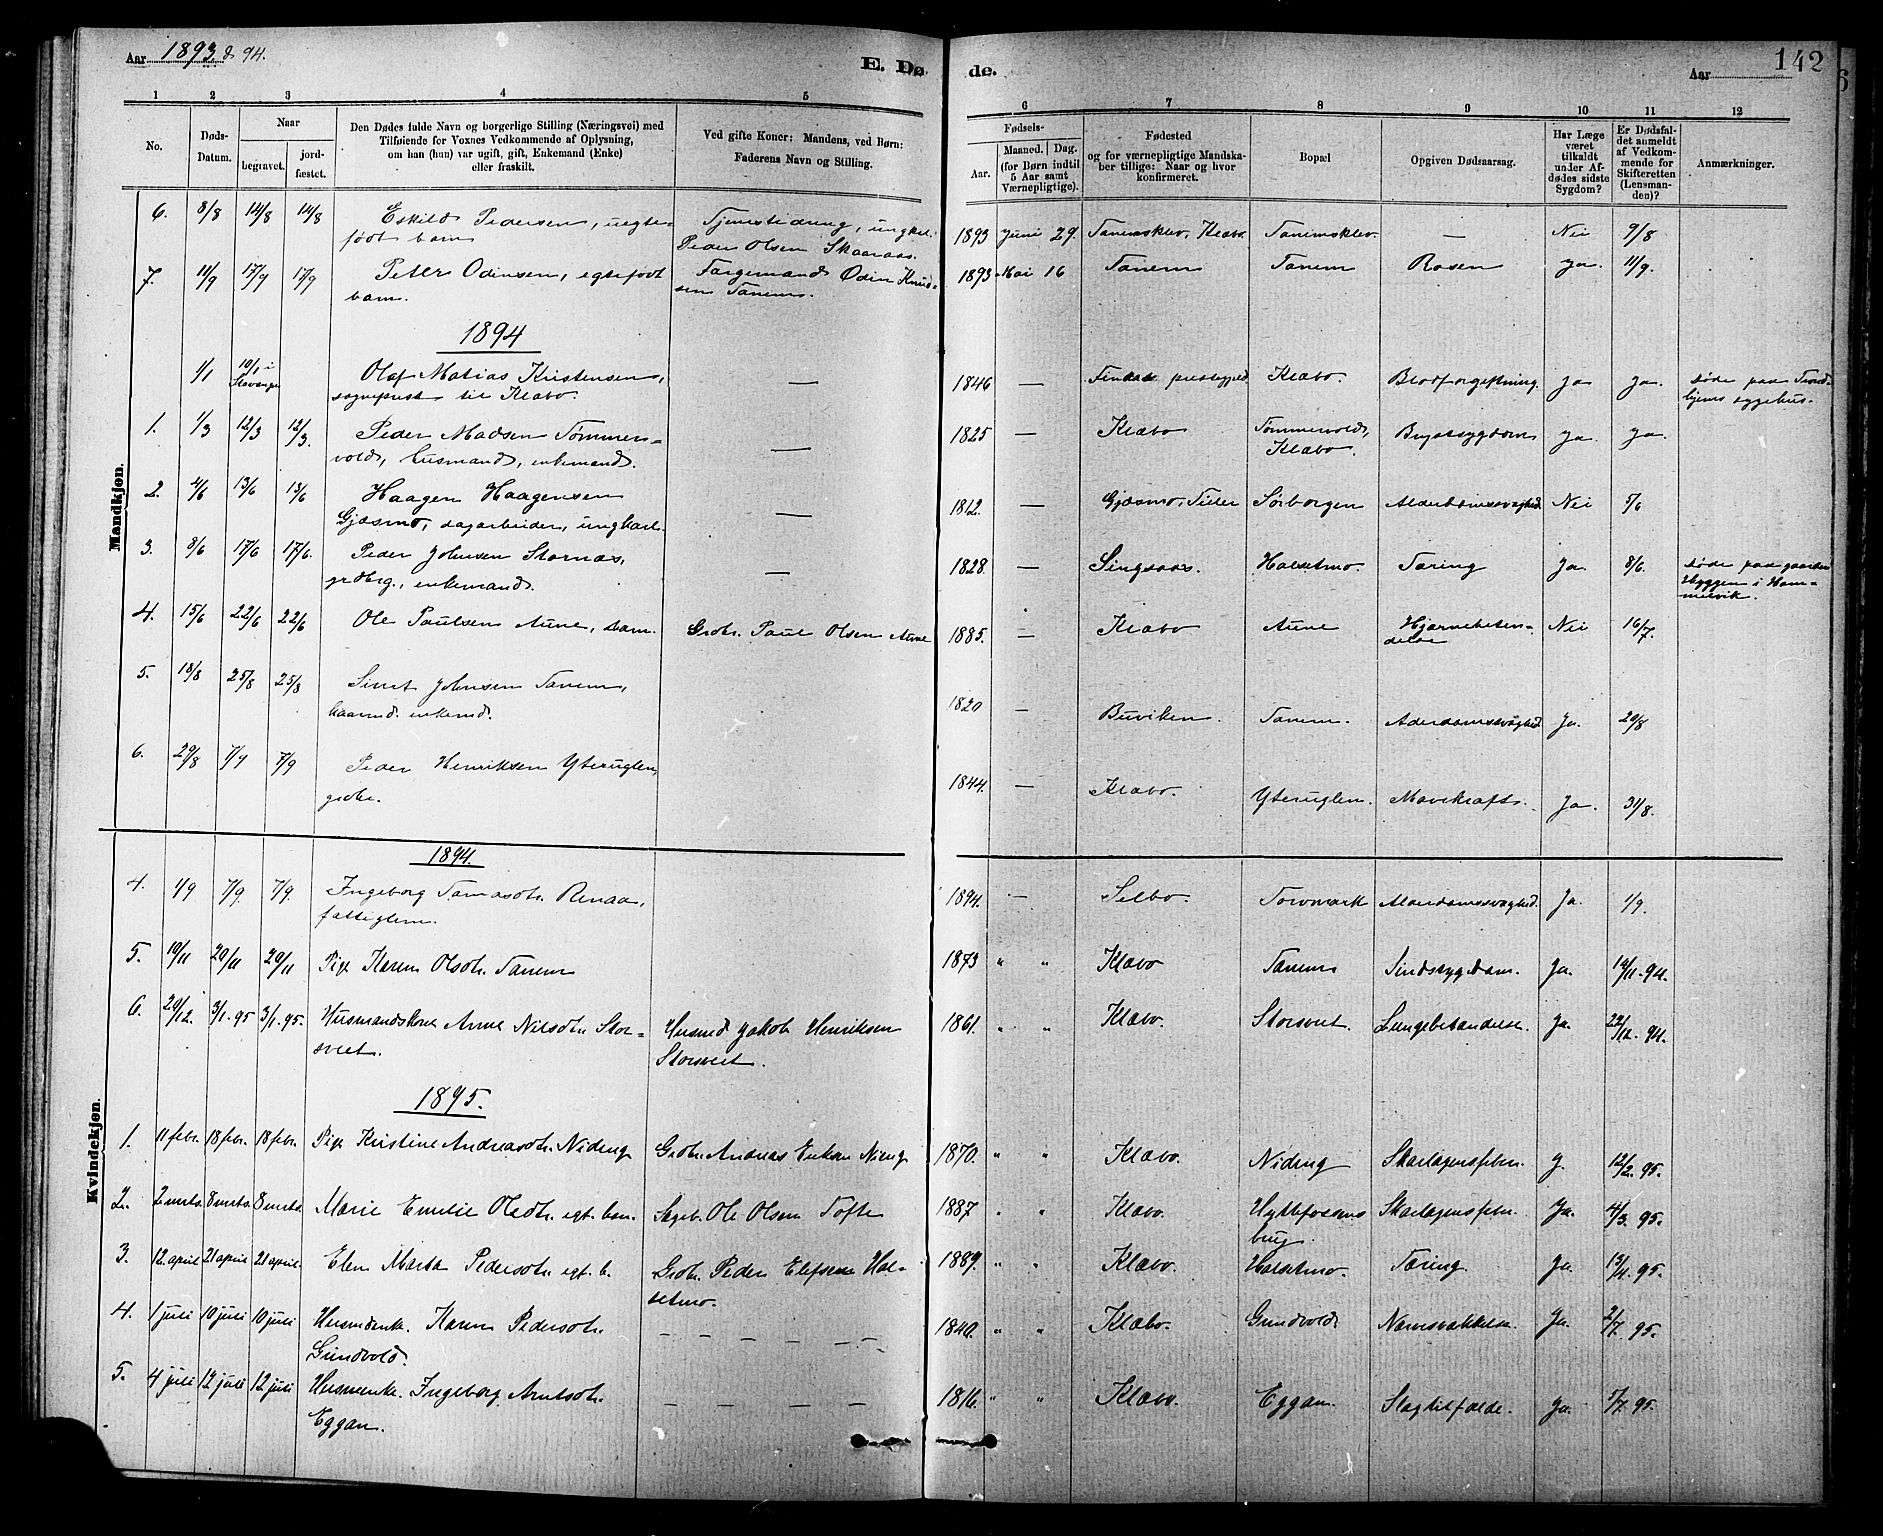 Aar 1893 & 94.
E. Dø
de.
Aar
142
1 2 3 4 5 6 7 8 9 10 11 12
No.
Døds-Datum.
Naar
begravet.
jord-fæstet.
Den Dødes fulde Navn og borgerlige Stilling (Næringsvei) med
Tilføiende for Voxnes Vedkommende af Oplysning,
om han (hun) var ugift, gift, Enkemand (Enke)
eller fraskilt.
Ved gifte Koner: Mandens, ved Børn:
Faderens Navn og Stilling.
Fødsels-
Aar.
Maaned. Dag.
(for Børn indtil
5 Aar samt
Værnepligtige).
Fødested
og for værnepligtige Mandska-
ber tillige: Naar og hvor
konfirmeret.
Bopæl
Opgiven Dødsaarsag.
Har Læge
været
tilkaldt
under Af-
dødes sidste
Sygdom?
Er Dødsfal-
det anmeldt
af Vedkom-
mende for
Skifteretten
(Lensman-
den)?
Anmærkninger.
Mandkjøn.
6. 8/8 14/8 14/8 Eskild Pedersen, uegte- Tjenestedreng, ungkar. 1893 Juni 29. Tanemsklev, Klæbo. Tanemsklev — Nei 9/8
født barn Peder Olsen Skaaraas.
7. 11/9 17/9 17/9 Peter Odinsen, egtefødt Odin Knud- 1893 Mai 16 Tanem Tanem Rosen Ja. 11/9.
barn. sen Tanem.
1894
1/1 10/1 i Stavanger Olaf Matias Kristensen, — 1846 — prestegjeld Klæbo. Blodforgiftning. Ja Ja. døde paa Trond-
sogneprest til Klæbo. hjems sygehus.
1. 1/3 12/3 12/3. Peder Madsen Tømmer- — 1825 — Klæbo Tømmervold, Brystsygdom Ja. Ja.
vold, husmand, enkemand. Klæbo.
2. 4/6 13/6 13/6 Haagen Haagensen — 1812. — Gjæsmo, Tiller Sørborgen Alderdomssvaghed Nei 5/6
Gjæsmo, dagarbeider, ungkarl.
3. 8/6 17/6 17/6. Peder Johnsen Stornæs, — 1828. — Singsaas. Halsetmo Tæring Ja. 8/6. døde paa gaarden
grdbrg., enkemand. Hyggen i Ham-
mervik.
4. 15/6 22/6 22/6 Ole Paulsen Aune, barn. Grdbr. Paul Olsen Aune 1885. — Klæbo Aune Hjernebeten- Nei 16/7.
delse
5. 18/8 25/8 25/8 Sivert Johnsen Tanem, 1820 — Buviken. Tanem. Aderdomssvaghed Ja. 20/8
kaarmd. enkemd.
6. 29/8 7/9 7/9 Peder Henriksen Yteruglen, 1844. — Klæbo. Yteruglen. Mavekræft. Ja. 31/8.
grdbr.
Kvindekjøn.
1894.
4. 1/9 7/9. 7/9. Ingeborg Tomasdtr. Renaa, 1894. — Selbo. Torvmark Alderdomssvaghed. Ja. 1/9.
fattiglem.
5. 10/11 20/11 20/11 Pige Karen Olsdtr. Tanem 1873 " " Klæbo Tanem Sindssygdom. Ja. 12/11. 94.
6. 20/12. 3/1. 95 3/1. 95. Husmandskone Anne Nilsdtr. Stor- Husmd Jakob Henriksen 1861. " " Klæbo. Storsvet. Lungebetændelse. Ja. 22/12. 94.
svet. Storsvet.
1895.
1. 11 febr. 18 febr. 18 febr. Pige Kristine Andreasdtr. Nideng Grdbr. Andreas Eriksen Nideng 1870. " " Klæbo. Nideng Skarlagensfeber. J. 12/2. 95.
2. 2 marts. 8 marts. 8 marts. Marie Emelie Olsdtr. egt. barn. Sagarb. Ole Olsen Tofte 1887 " " Klæbo. Hyttefossens Skarlagensfeber. Ja. 4/3. 95.
brug.
3. 12. april 21 april 21 april. Elen Marta Pedersdtr. egt. b. Grdbr. Peder Elefsen Hal- 1889. " " Klæbo. Halsetmo. Tæring. Ja. 13/4. 95.
setmo.
4. 1 juli 10 juli 10 juli Husmdenke. Karen Pedersdtr. — — — — — 1840. " " Klæbo. Gundvold. Nervesvækkelse. Ja. 2/7. 95.
Gundvold.
5. 4 juli 12 juli 12 juli Husmenke. Ingeborg Arntsdtr. — — — — — 1816. " " Klæbo. Eggan. Slagtilfælde. Ja. 5/7. 95.
Eggan.